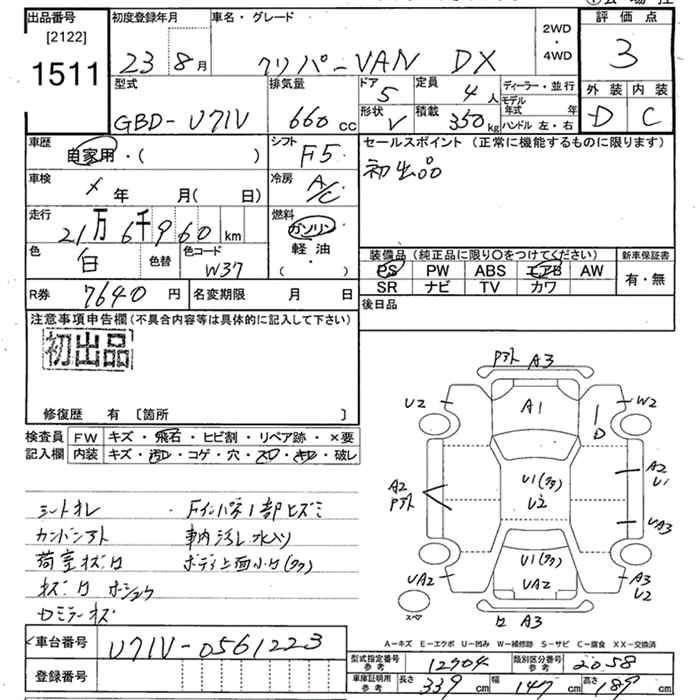 出品番号 初度登録年月 車名・グレード 評価点
[2122] 23 8月 クリパーVAN DX 2WD・4WD 3
1511 型式 排気量 ドア 定員 ディーラー・並行 外装 内装
GBD-U71V 660cc 5 4人 モデル年式 年 D C
形状 V 積載 350kg ハンドル 左・右
車歴 自家用・( ) シフト F5 セールスポイント (正常に機能するものに限ります)
車検 × 年 月( 日) 冷房 A/C 初出品
走行 21万6千960km 燃料 ガソリン
色 白 色替 色コード W37 軽油・( )
装備品 (純正品に限り〇をつけてください) 新車保証書
PS PW ABS エアB AW 有・無
SR ナビ TV カワ
R券 7640円 名変期限 月 日 後日品
注意事項申告欄(不具合内容等は具体的に記入して下さい)
初出品
修復歴 有 [箇所 ]
検査員 FW キズ・飛石・ヒビ割・リペア跡・×要
記入欄 内装 キズ・汚れ・コゲ・穴・スレ・キレ・破レ
A3
U2 A1 W2
D
A2 U1 A2 U1
U2 UA3
U1
UA2 UA2 A3 U2
スペア A3
シートオレ
車内ヨゴレ水入り
荷室キズ
A-キズ E-エクボ U-凹み W-補修跡 S-サビ C-腐食 XX-交換済
車台番号 U71V-0561223
登録番号
型式指定番号 参考 12704 類別区分番号 参考 2058
車庫証明用 参考 長さ 339cm 幅 147cm 高さ 189cm